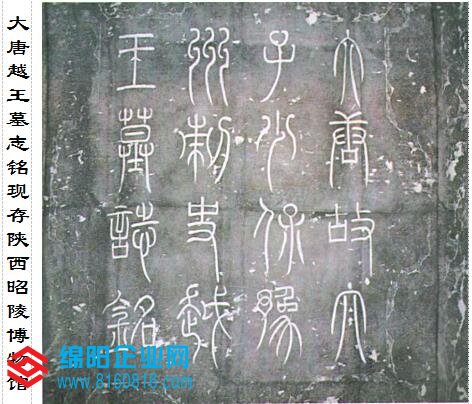 大唐越王墓志铭现存陕西昭陵博物馆
大唐故太
子少保豫
州刺史越
王墓誌銘
绵阳企业网
www.8160816.com